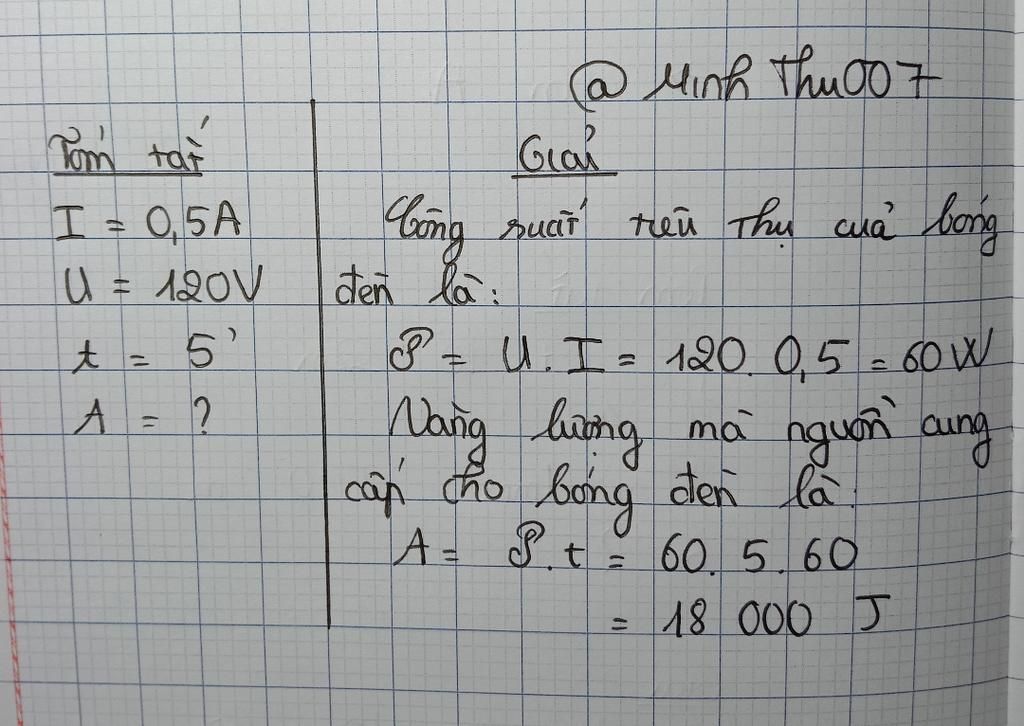 @ Minh Thu007
Tóm tắt
I = 0,5A
U = 120V
t = 5'
A = ?
Giải
Công suất tiêu thụ của bóng
đèn là:
P = U. I = 120. 0,5 = 60W
Năng lượng mà nguồn cung
cấp cho bóng đèn là:
A = P.t = 60. 5. 60
= 18 000 J